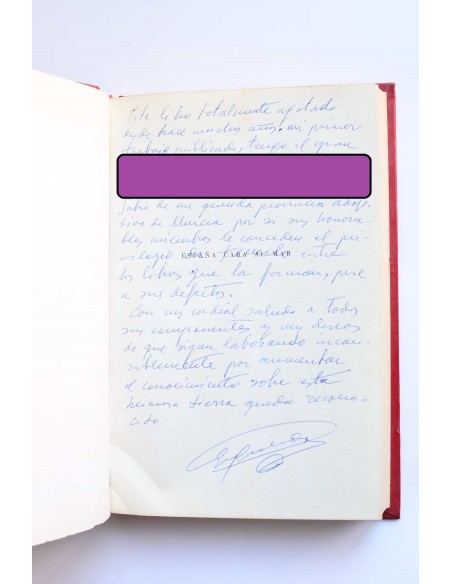 Este libro totalmente agotado
desde hace muchos años, mi primer
trabajo publicado, tengo el gran
Sabio de mi querida provincia adop-
tiva de Murcia por si sus honora-
bles miembros le conceden el pri-
vilegio de figurar entre
ESPAÑA CARA AL MAR
los libros que la forman, pese
a sus defectos.
Con un cordial saludo a todos
sus componentes y mis deseos
de que sigan laborando incan-
sablemente por aumentar
el conocimiento sobre esta
hermosa tierra quedo recono-
cido